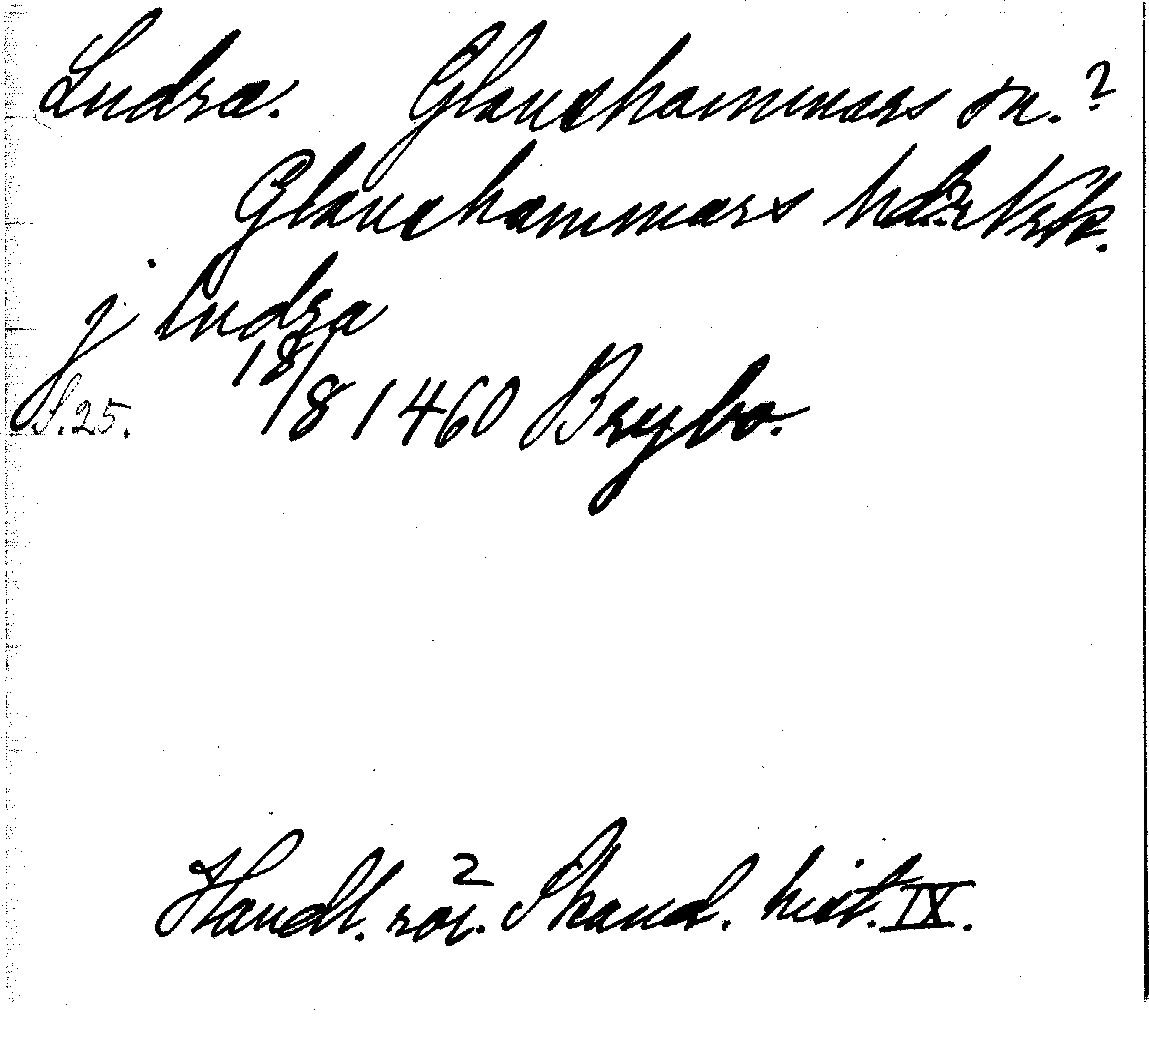 Ludra. Glanshammars sn.?
Glanshammars hd? Nrk.
j ludra
S. 25. 18/8 1460 Brybo.
Handl. rör. 2 Skand. hist. IX.